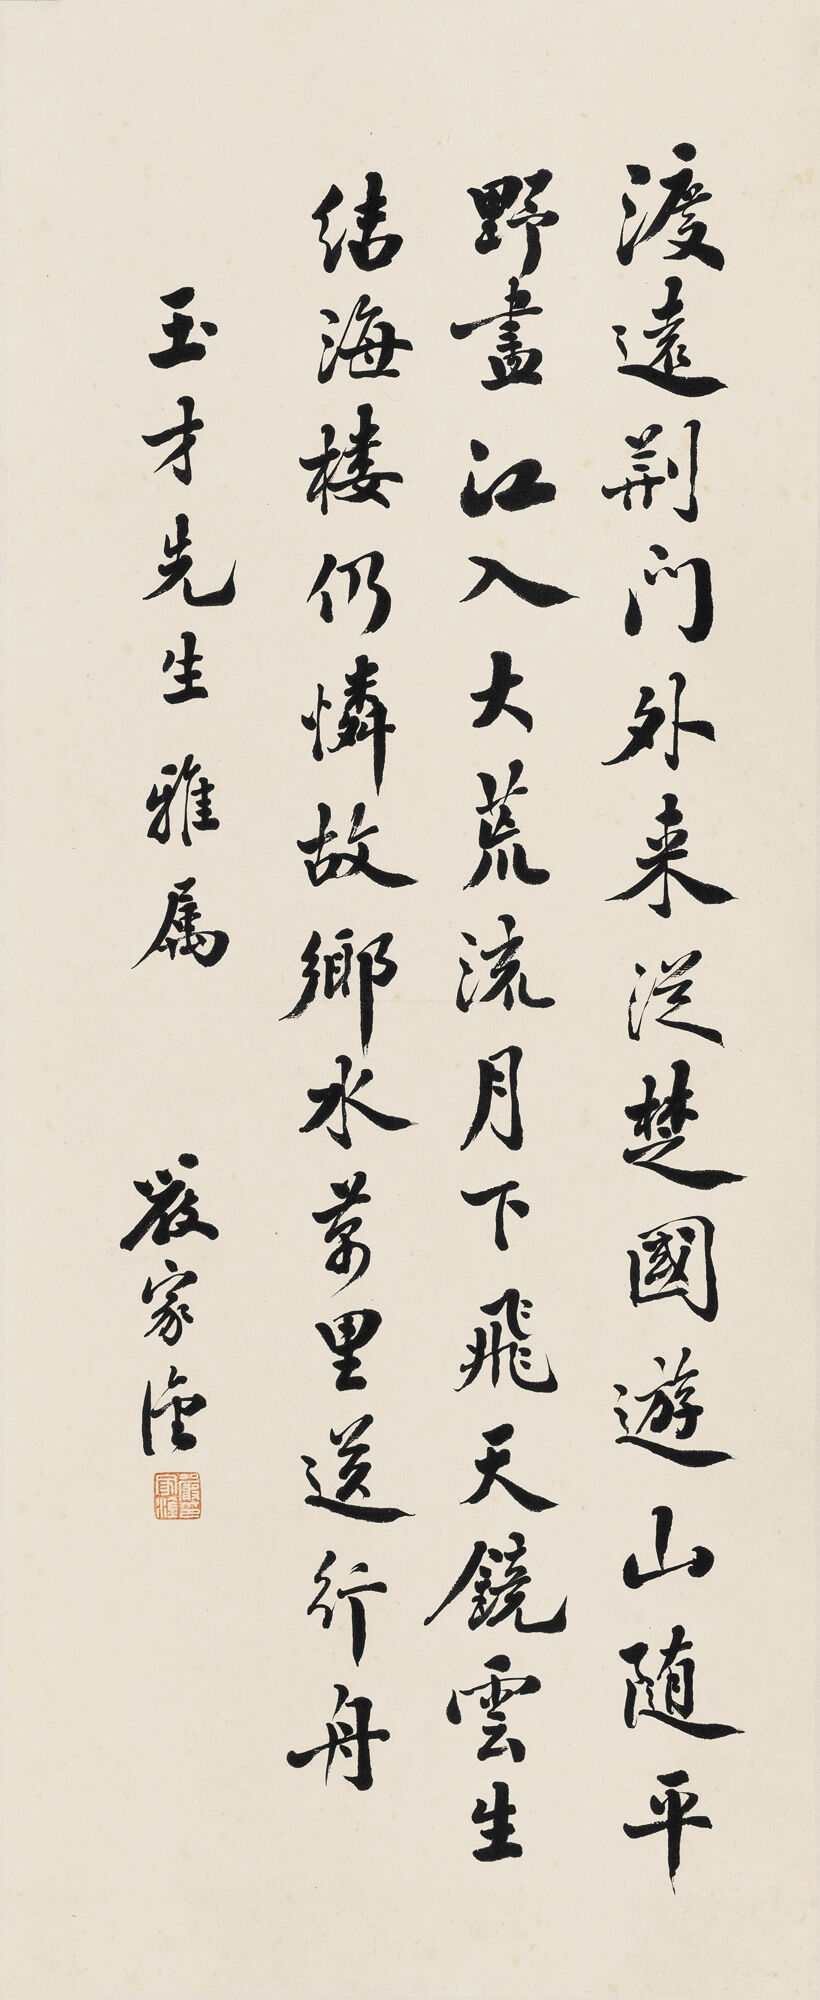 渡遠荆门外来從楚國遊山随平
野盡江入大荒流月下飛天鏡雲生
结海楼仍憐故鄉水萬里送行舟
玉才先生雅属
嚴家淦